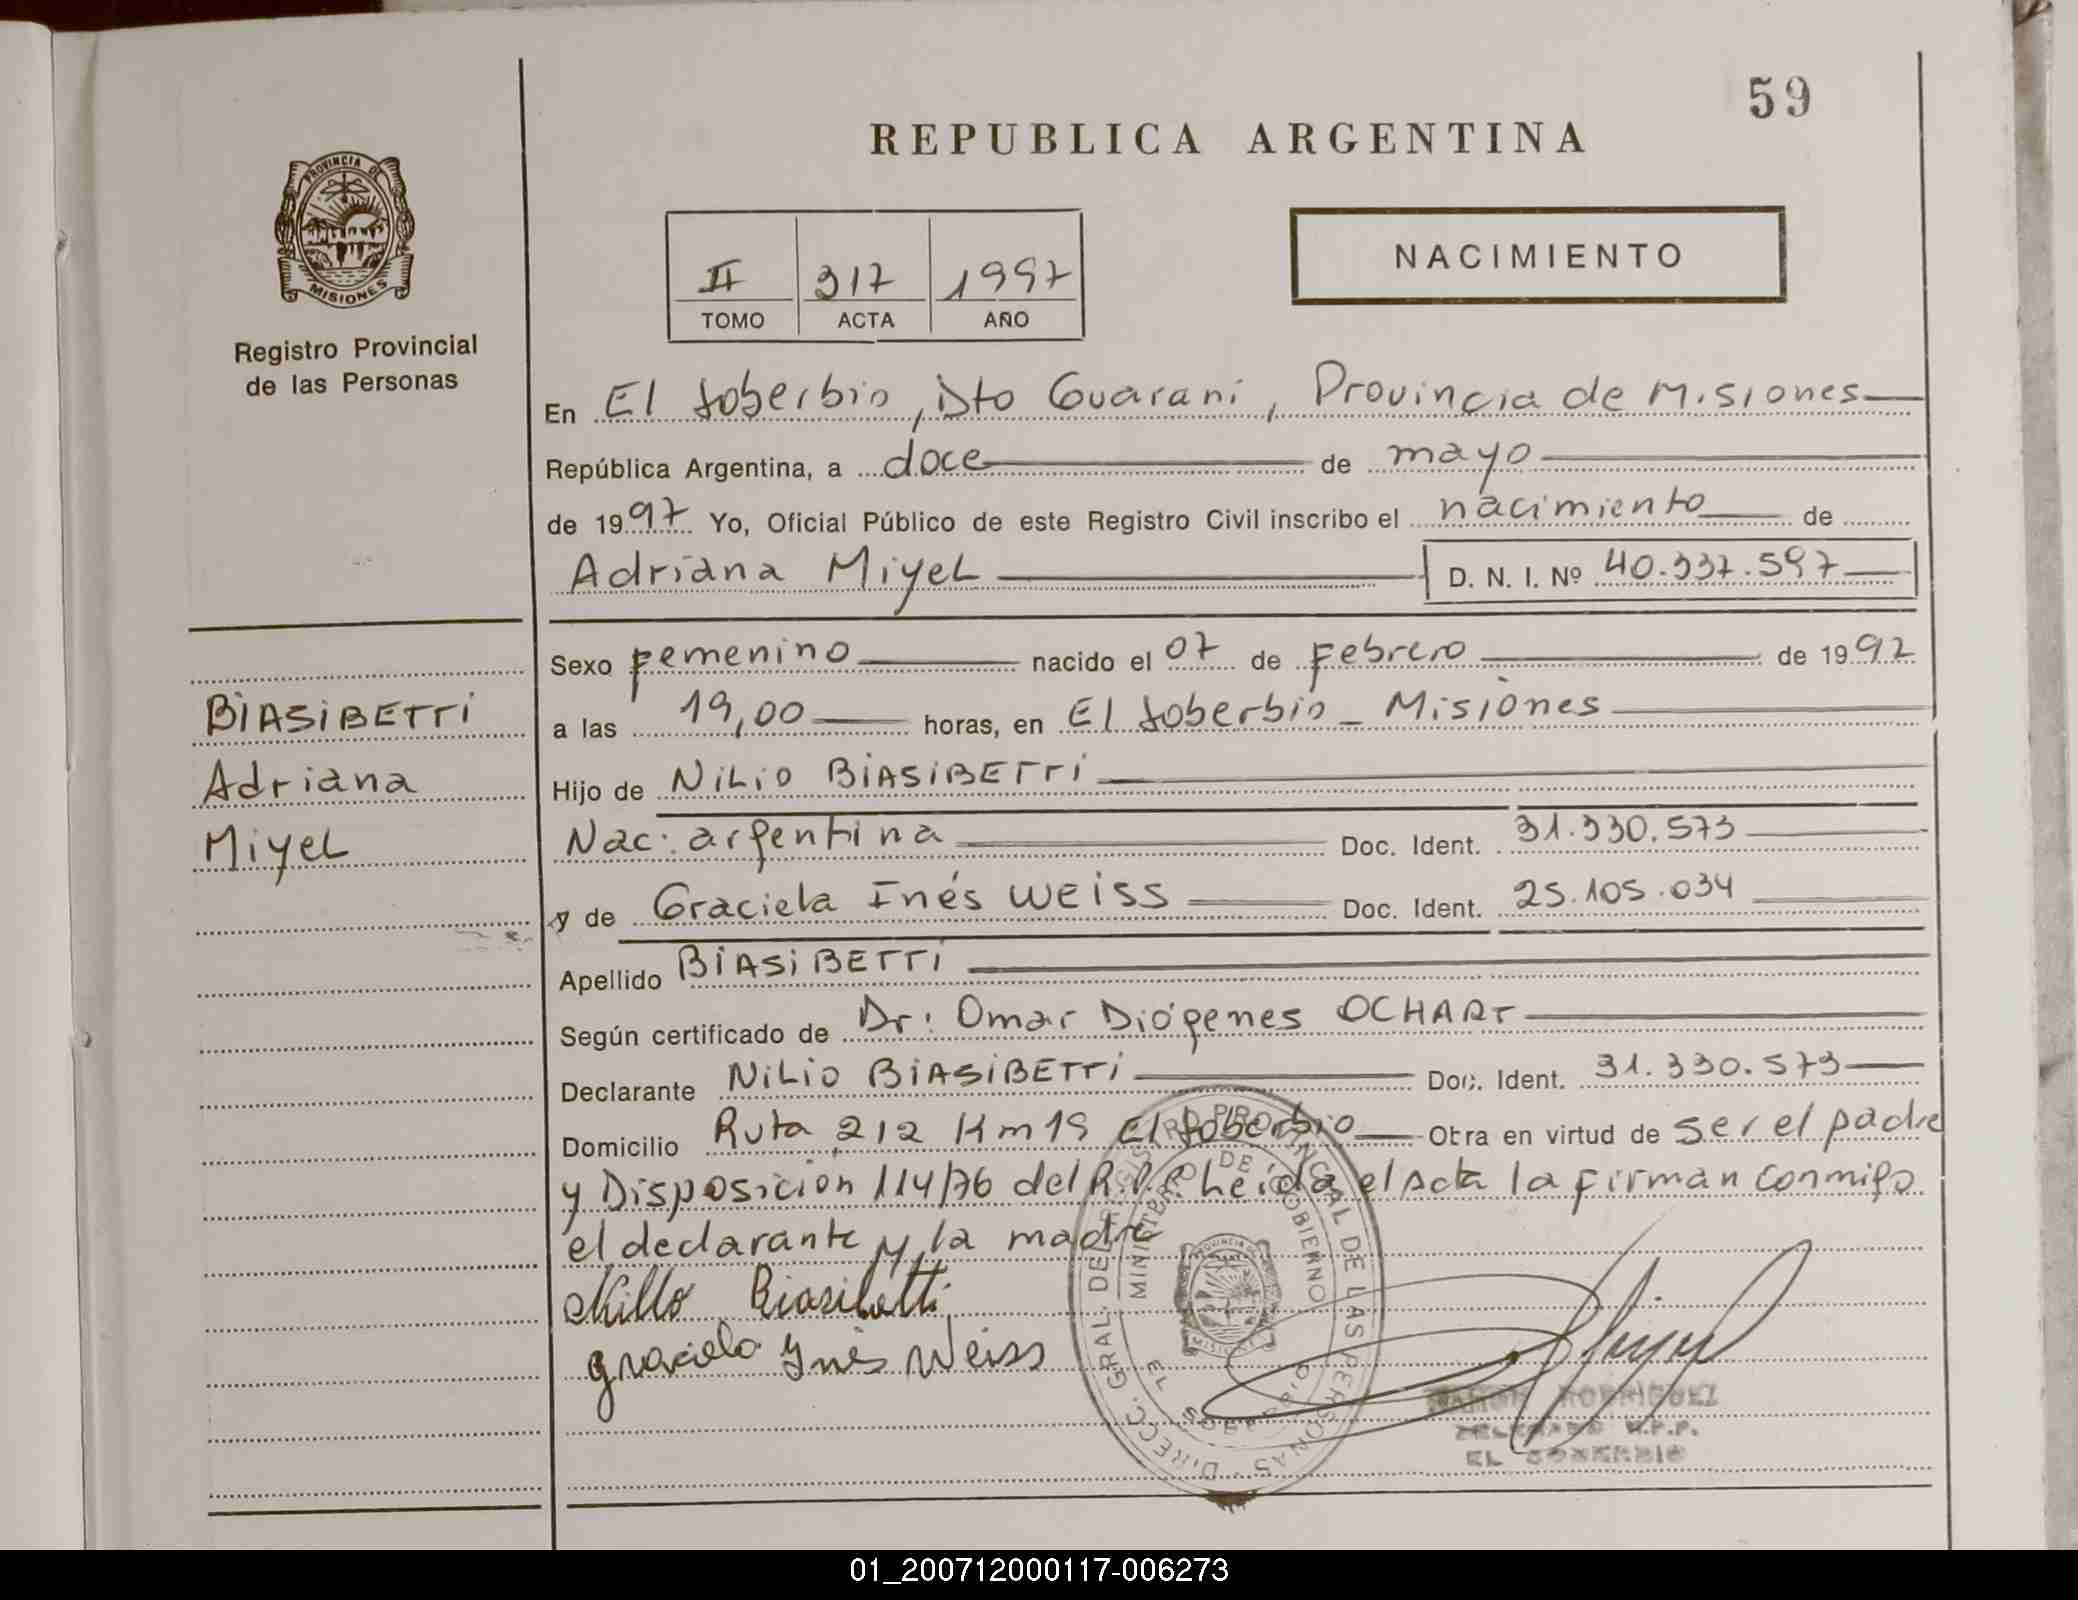 59
REPUBLICA ARGENTINA
PROVINCIA DE MISIONES
Registro Provincial
de las Personas
II 317 1997
TOMO ACTA AÑO
NACIMIENTO
En El Soberbio, Dto Guaraní, Provincia de Misiones
República Argentina, a doce de mayo
de 1997 Yo, Oficial Público de este Registro Civil inscribo el nacimiento de
Adriana Miyel D. N. I. Nº 40.337.597
Sexo Femenino nacido el 07 de Febrero de 1992
a las 19,00 horas, en El Soberbio - Misiones
Hijo de NiLio BiASiBETTi
Nac: argentina Doc. Ident. 31.330.573
y de Graciela Inés WEiSS Doc. Ident. 25.105.034
Apellido BiASiBETTi
Según certificado de Dr: Omar Diógenes OCHART
Declarante NiLio BiASiBETTi Doc. Ident. 31.330.573
Domicilio Ruta 212 Km 19 El Soberbio Obra en virtud de ser el padre
y Disposición 114/76 del R.P.P. Leída el Acta la firman conmigo
el declarante y la madre
BiASiBETTi
Adriana
Miyel
Nillo Biasibetti
Graciela Ynés Weiss
DIRECC. GRAL. DEL REGISTRO PROVINCIAL DE LAS PERSONAS
MINISTERIO DE GOBIERNO
PROVINCIA DE MISIONES
EL SOBERBIO
RAMON RODRIGUEZ
DELEGADO R.P.P.
EL SOBERBIO
01_200712000117-006273